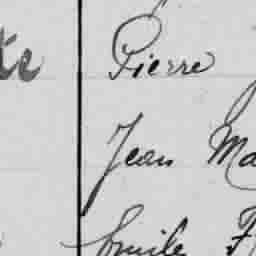 Pierre
Jean Ma
Emile F